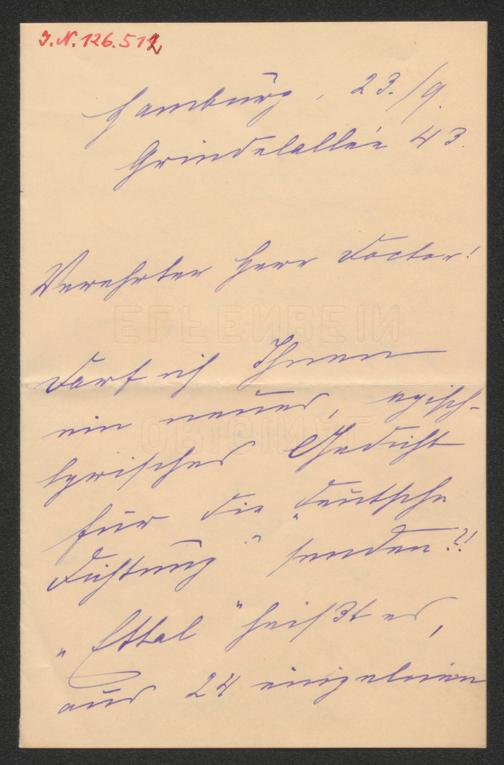 J.N. 126.512
Hamburg, 23./9.
Grindelallée 43.
Verehrter Herr Doctor!
ELFENBEIN
Darf ich Ihnen
ein neues, episch-
lyrisches Gedicht
für die „Deutsche
Dichtung" senden?!
„Ettal" heißt es,
aus 24 einzelnen